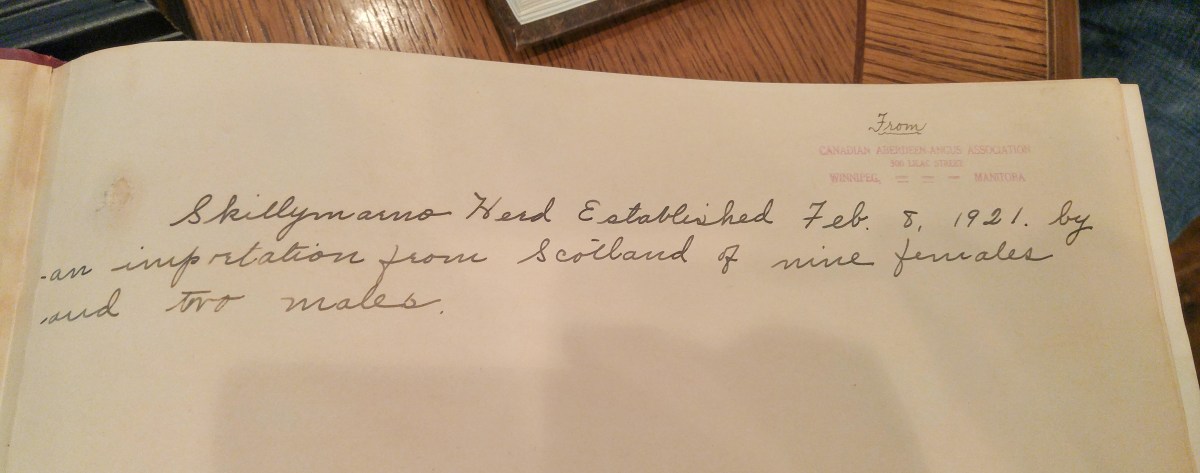 From
CANADIAN ABERDEEN-ANGUS ASSOCIATION
906 LILAC STREET
WINNIPEG, — — — MANITOBA
Skillymarno Herd Established Feb. 8, 1921. by
an importation from Scotland of nine females
and two males.